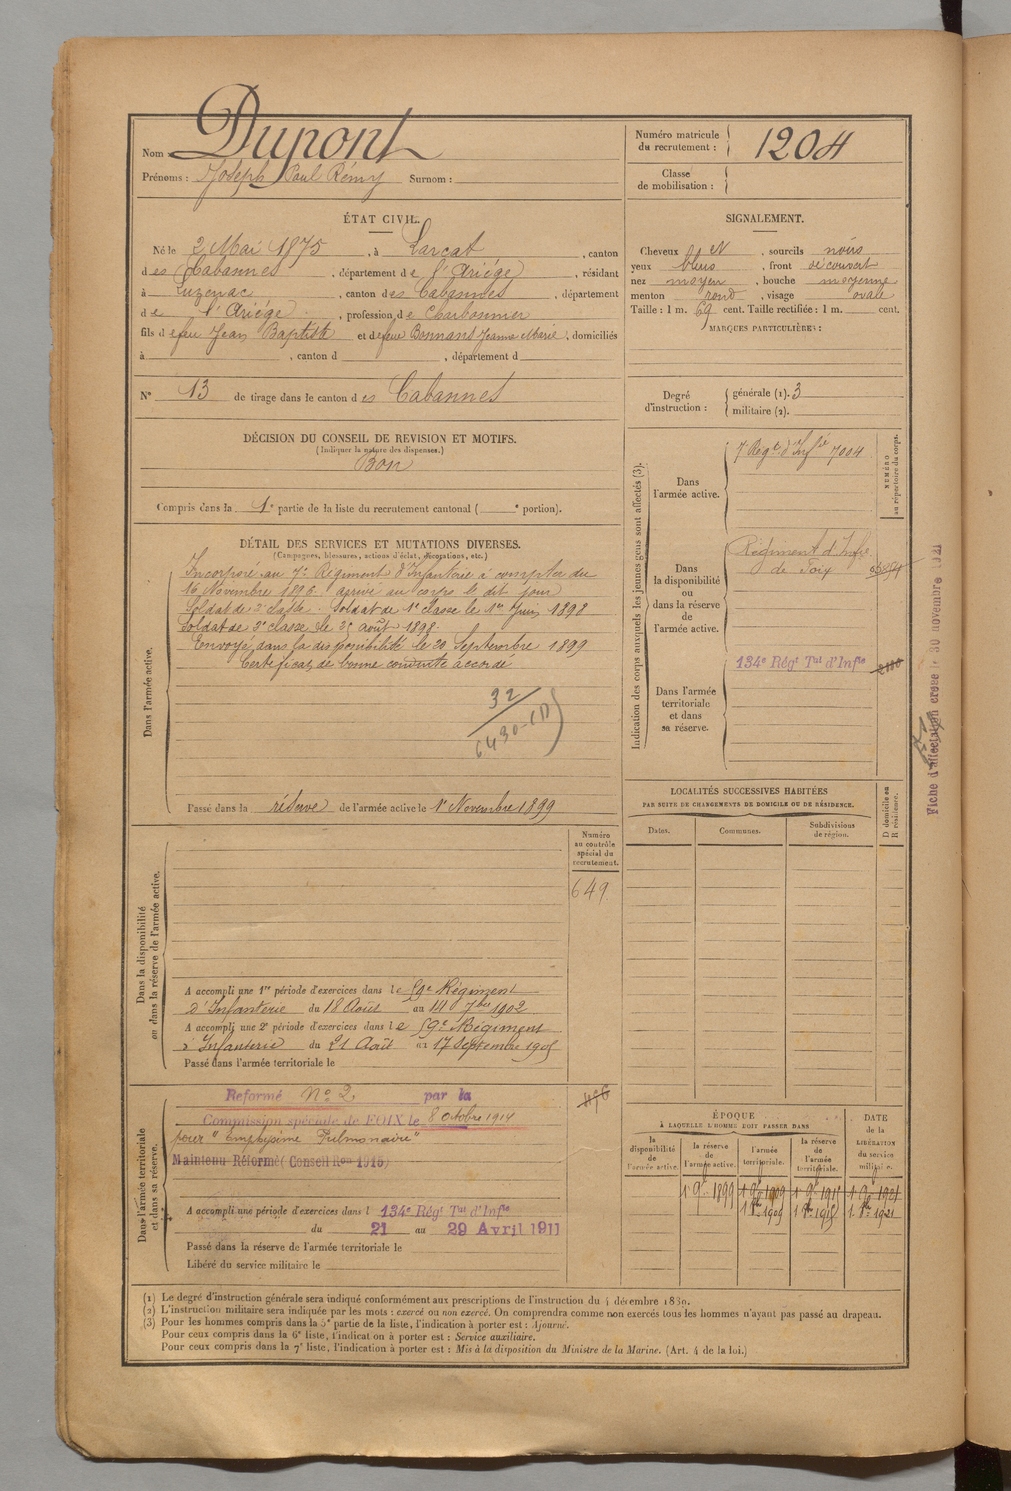 Nom : Dupont
Prénoms : Joseph Paul Rémy Surnom :
Numéro matricule du recrutement : 1204
Classe de mobilisation :
ÉTAT CIVIL.
Né le 2 Mai 1875, à Larcat, canton
des Cabannes, département de l'Ariége, résidant
à Luzenac, canton des Cabannes, département
de l'Ariége, profession de Charbonnier
fils de feu Jean Baptiste et de feue Bonnans Jeanne Marie, domiciliés
à , canton d , département d
N° 13 de tirage dans le canton des Cabannes
SIGNALEMENT.
Cheveux et N, sourcils noirs
yeux bleus, front découvert
nez moyen, bouche moyenne
menton rond, visage ovale
Taille : 1 m. 69 cent. Taille rectifiée : 1 m. cent.
MARQUES PARTICULIÈRES :
Degré d'instruction :
générale (1). 3
militaire (2).
DÉCISION DU CONSEIL DE REVISION ET MOTIFS.
(Indiquer la nature des dispenses.)
Bon
Compris dans la 1e partie de la liste du recrutement cantonal ( e portion).
DÉTAIL DES SERVICES ET MUTATIONS DIVERSES.
(Campagnes, blessures, actions d'éclat, décorations, etc.)
Dans l'armée active.
Incorporé au 7e Régiment d'Infanterie à compter du
16 Novembre 1896 arrivé au corps le dit jour
Soldat de 2e classe. Soldat de 1e classe le 1er Juin 1898
Soldat de 2e classe le 25 août 1898.
Envoyé dans la disponibilité le 20 Septembre 1899
Certificat de bonne conduite accordé
32
(430-CD)
Passé dans la réserve de l'armée active le 1r Novembre 1899
Indication des corps auxquels les jeunes gens sont affectés (3).
NUMÉRO au répertoire du corps.
Dans l'armée active.
7e Régt d'Infie 7004
Dans la disponibilité ou dans la réserve de l'armée active.
Régiment d'Infie
de Foix
Dans l'armée territoriale et dans sa réserve.
134e Régt Tal d'Infie
Fiche d'affectation créée le 30 novembre 1921
LOCALITÉS SUCCESSIVES HABITÉES
PAR SUITE DE CHANGEMENTS DE DOMICILE OU DE RÉSIDENCE.
Dates. Communes. Subdivisions de région. D domicile ou R résidence.
Dans la disponibilité ou dans la réserve de l'armée active.
Numéro au contrôle spécial du recrutement.
649
A accompli une 1re période d'exercices dans le 59e Régiment
d'Infanterie du 18 Août au 14 7bre 1902
A accompli une 2e période d'exercices dans le 59e Régiment
d'Infanterie du 21 Août au 17 Septembre 1905
Passé dans l'armée territoriale le
Dans l'armée territoriale et dans sa réserve.
Reformé No 2 par la
Commission spéciale de FOIX le 8 octobre 1914
pour "Emphysème Pulmonaire"
Maintenu Réformé (Conseil Ron 1915)
A accompli une période d'exercices dans l 134e Régt Tal d'Infie
du 21 au 29 Avril 1911
Passé dans la réserve de l'armée territoriale le
Libéré du service militaire le
ÉPOQUE
À LAQUELLE L'HOMME DOIT PASSER DANS
la disponibilité de l'armée active. la réserve de l'armée active. l'armée territoriale. la réserve de l'armée territoriale.
DATE de la LIBÉRATION du service militaire.
(1) Le degré d'instruction générale sera indiqué conformément aux prescriptions de l'instruction du 4 décembre 1889.
(2) L'instruction militaire sera indiquée par les mots : exercé ou non exercé. On comprendra comme non exercés tous les hommes n'ayant pas passé au drapeau.
(3) Pour les hommes compris dans la 5e partie de la liste, l'indication à porter est : Ajourné.
Pour ceux compris dans la 6e liste, l'indication à porter est : Service auxiliaire.
Pour ceux compris dans la 7e liste, l'indication à porter est : Mis à la disposition du Ministre de la Marine. (Art. 4 de la loi.)